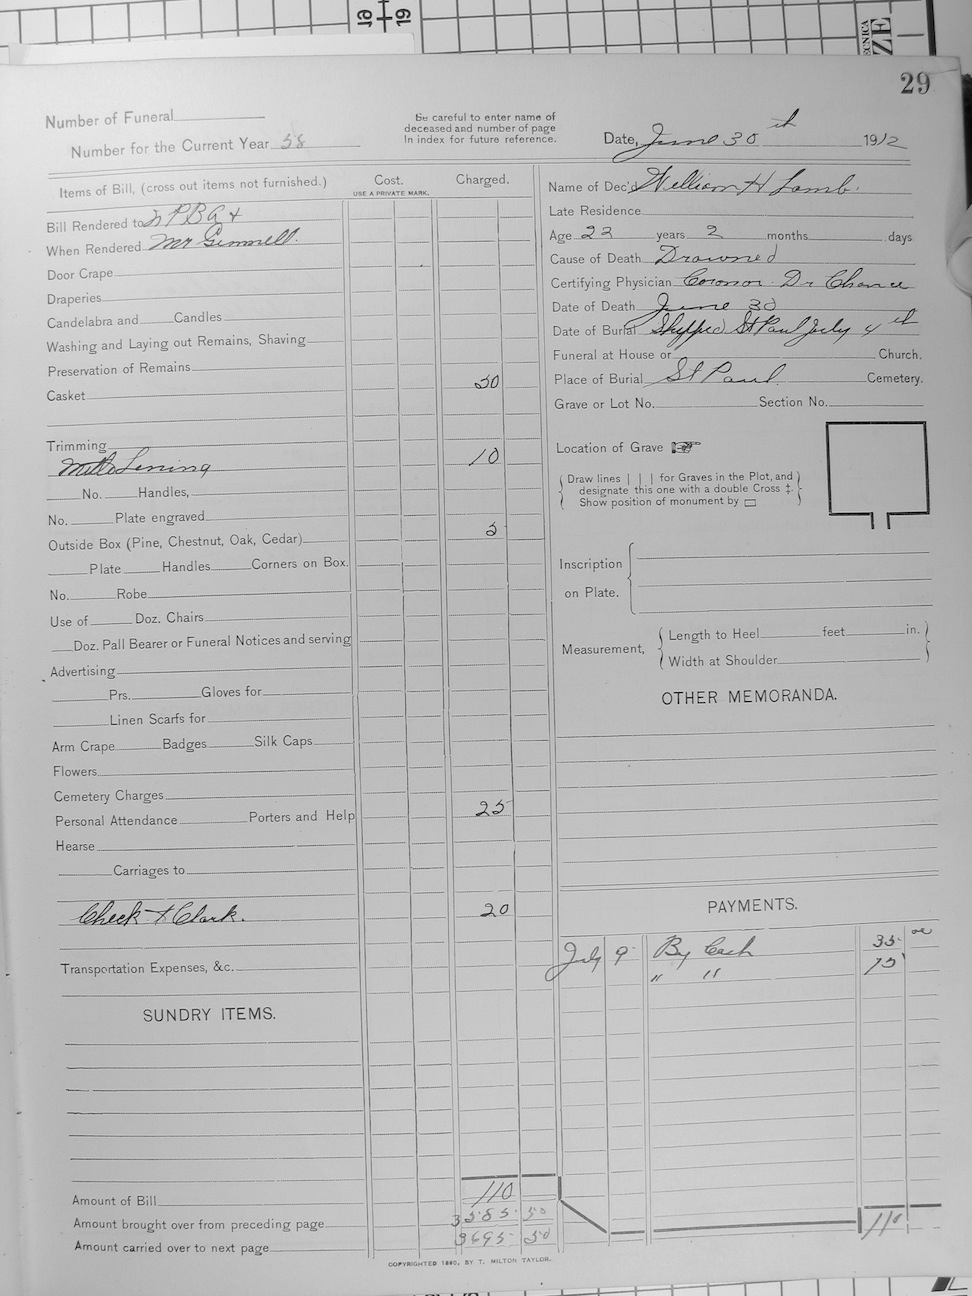 29
Number of Funeral
Number for the Current Year 58
Be careful to enter name of
deceased and number of page
in index for future reference.
Date, June 30th 1912
Items of Bill, (cross out items not furnished.) Cost. Charged.
USE A PRIVATE MARK.
Bill Rendered to
When Rendered Mr Gemmell.
Door Crape
Draperies
Candelabra and Candles
Washing and Laying out Remains, Shaving
Preservation of Remains
Casket 50
Trimming
Lining 10
No. Handles,
No. Plate engraved
Outside Box (Pine, Chestnut, Oak, Cedar) 5
Plate Handles Corners on Box.
No. Robe
Use of Doz. Chairs
Doz. Pall Bearer or Funeral Notices and serving
Advertising
Prs. Gloves for
Linen Scarfs for
Arm Crape Badges Silk Caps
Flowers
Cemetery Charges
Personal Attendance Porters and Help 25
Hearse
Carriages to
Check & Clark. 20
Transportation Expenses, &c.
SUNDRY ITEMS.
Amount of Bill 110
Amount brought over from preceding page 3585 50
Amount carried over to next page 3695 50
Name of Dec'd William H Lamb.
Late Residence
Age 22 years 2 months days
Cause of Death Drowned
Certifying Physician Coronor Dr Chance
Date of Death June 30
Date of Burial Shipped St Paul July 4th
Funeral at House or Church.
Place of Burial St Paul Cemetery.
Grave or Lot No. Section No.
Location of Grave ☞
Draw lines | | | for Graves in the Plot, and
designate this one with a double Cross ‡.
Show position of monument by ▭
Inscription
on Plate.
Measurement, Length to Heel feet in.
Width at Shoulder
OTHER MEMORANDA.
PAYMENTS.
July 9 By Cash 35 00
" " 75
110
COPYRIGHTED 1890, BY T. MILTON TAYLOR.